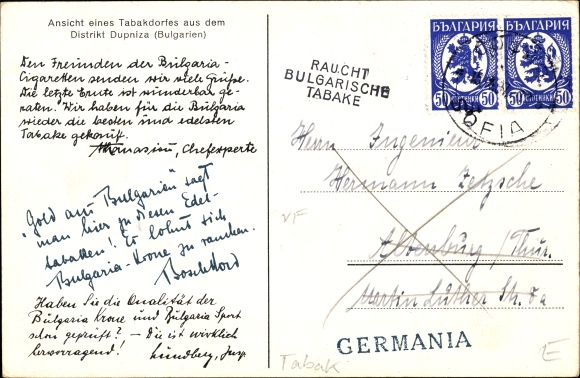 Ansicht eines Tabakdorfes aus dem
Distrikt Dupniza (Bulgarien)
Den Freunden der Bulgaria-
Cigaretten senden wir viele Grüße.
Die letzte Ernte ist wunderbar ge-
raten. Wir haben für die Bulgaria
wieder die besten und edelsten
Tabake gekauft.
Athanasiu, Chefexperte
"Gold aus Bulgarien" sagt
man hier zu diesen Edel-
tabakken! Es lohnt sich
Bulgaria-Krone zu rauchen.
Haben Sie die Qualität der
Bulgaria Krone und Bulgaria Sport
schon geprüft? – Die ist wirklich
hervorragend! Lundberg, Insp.
RAUCHT
BULGARISCHE
TABAKE
БЪЛГАРИЯ БЪЛГАРИЯ
50 СТОТИНКИ 50 50 СТОТИНКИ 50
SOFIA
Herrn Ingenieur
Hermann Zetzsche
Altenburg/Thür.
Martin Luther Str.
GERMANIA
VF
Tabak
E